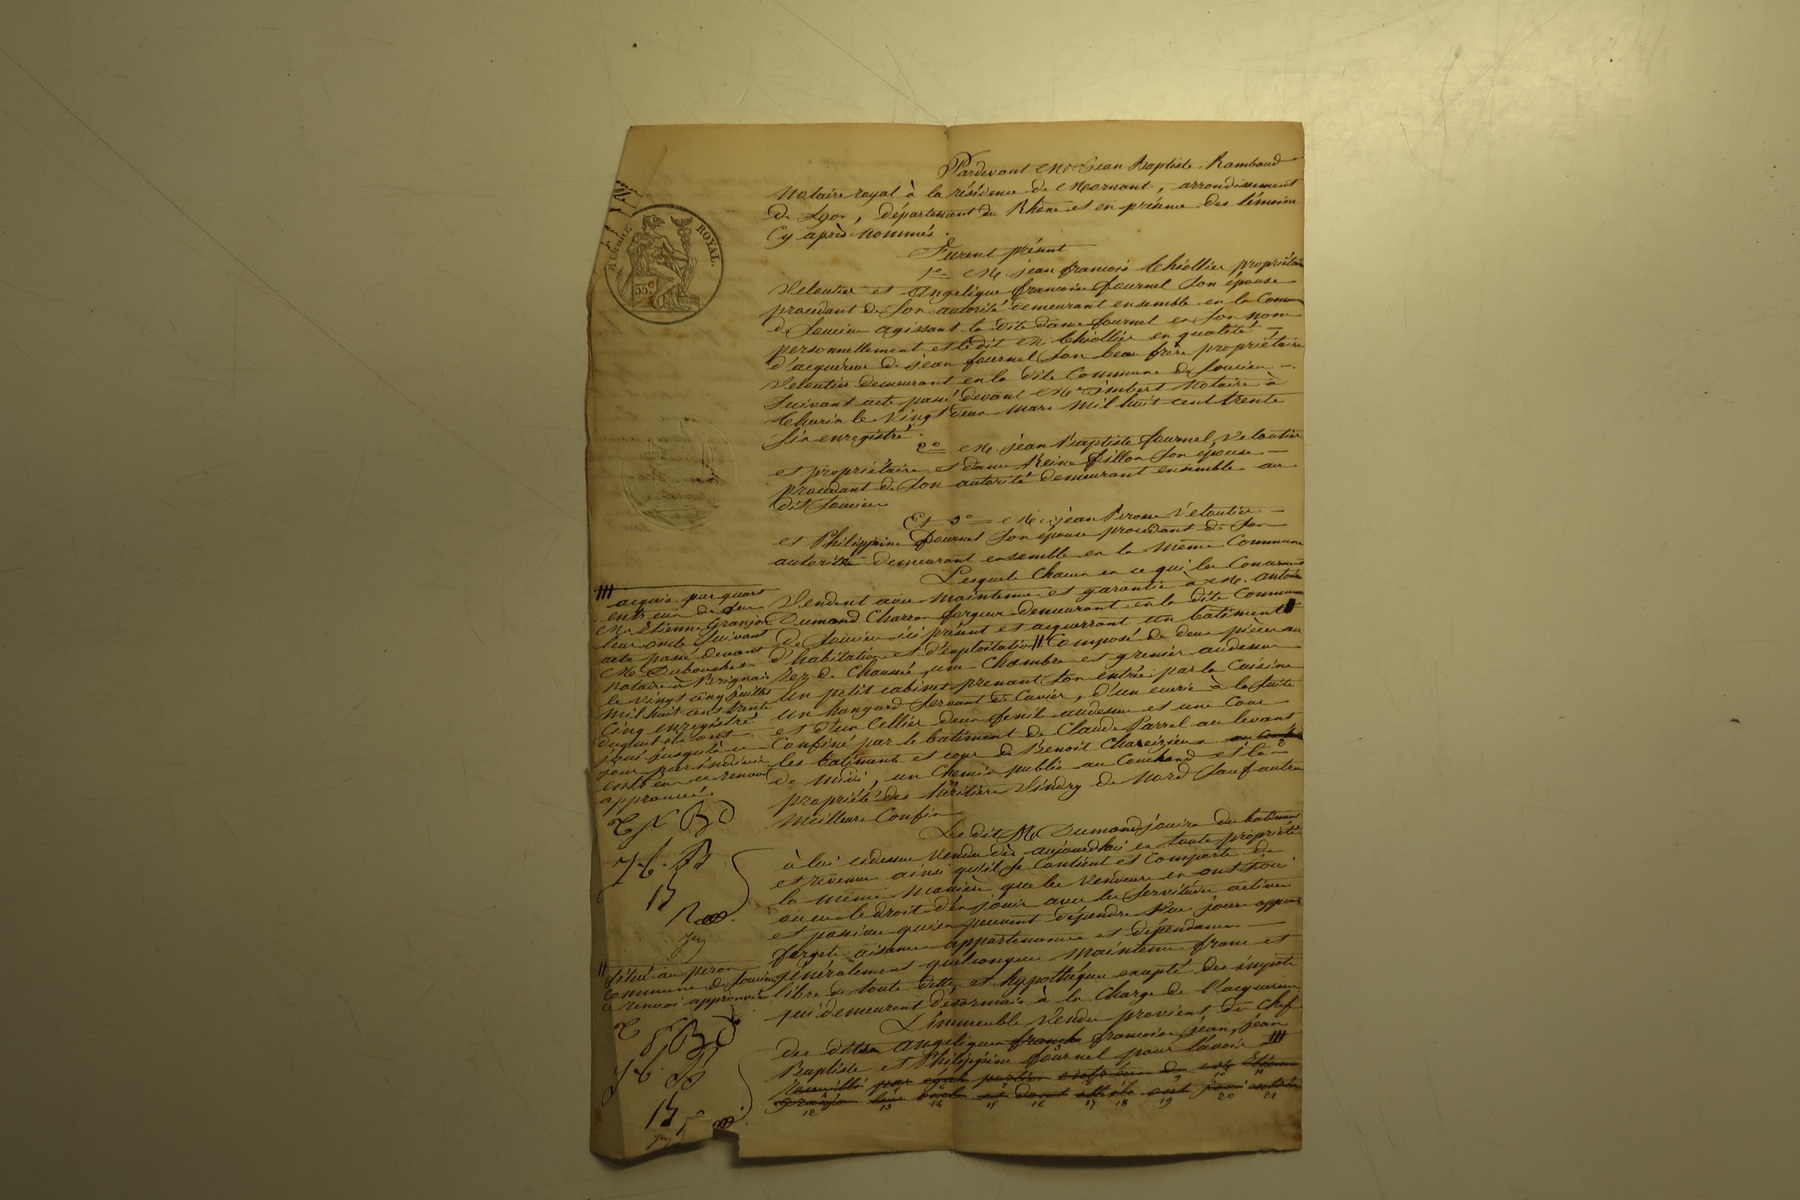 Pardevant Me Jean Baptiste Rambaud
Notaire royal à la résidence de Mornant, arrondissement
de Lyon, département du Rhône et en présence des témoins
Cy après nommés.
Furent présent
1o M. jean francois Chollier propriétaire
Veloutier et Angelique francoise fournel Son épouse
procedant de Son autorité demeurant ensemble en la Commune
de Soucieu agissant la dite dame fournel en Son nom
personnellement et le dit M. Chollier en qualité
d'acquéreur de jean fournel Son beau frère propriétaire
Veloutier demeurant en la dite Commune de Soucieu
Suivant acte passé devant Me Imbert Notaire à
le Vingt deux mars mil huit cent trente
Six enregistré.
2o M. jean Baptiste fournel Veloutier
et propriétaire et dame Reine fillon Son épouse
procedant de Son autorité demeurant ensemble au
dit Soucieu
Et 3o M. jean Veloutier
et Philippine fournel Son épouse procedant de Son
autorité demeurant ensemble en la même Commune
Lesquels Chacun en ce qui les Concernent
Vendent avec maintenue et garantie à M. antoine
Dumond Charron forgeur demeurant en la dite Commune
de Soucieu ici présent et acquerrant un batiment
d'habitation et d'exploitation // Composé de deux pièces au
rez de Chaussé, une Chambre et grenier audessus
un petit cabinet prenant Son entrée par la Cuisine
un hangard Servant de Cuvier, d'un eurie à la Suite
et d'un Cellier deux fenil audessus et une Cour
Confiné par le batiment de Claude Parrel au levant
les batiment et cour de Benoit
de midi, un Chemin public au Couchand et la
propriété des héritiers Vindry de Nord Sauf autres
Meilleurs Confins
Le dit M. Dumond jouira du batiment
à lui cidessus Vendu dès aujourdhui en toute propriété
et revenu ainsi quil Se Contient et Comporte de
la même manière que les Vendeurs en ont joui
ou eu le droit d'en jouir avec les Servitudes actives
et passives qui en peuvent dépendre Vue jours
aisances appartenances et dépendances
généralement quelconques Maintenu franc et
libre de toute dettes et hypothéque excepté des impots
qui demeurent désormais à la Charge de l'acquereur
L'immeuble Vendu provient du Chef
des dits Angelique francoise, jean, jean
Baptiste et Philippine fournel pour l'avoir ///
par égale
12 13 14 15 16 17 18 19 20 21
/// acquis par quart
entr'eux de
M. Etienne Granjon
leur oncle Suivant
acte passé devant
Me Dubouchet
Notaire à Brignais
le Vingt cinq juillet
Mil huit cent trente
Cinq enregistré
duquel ils ont
joui jusqu'à ce
jour par indivis
entr'eux ce renvoi
approuvé.
// Situé au peron
Commune de Soucieu
ce renvoi approuvé
ROYAL.
35c